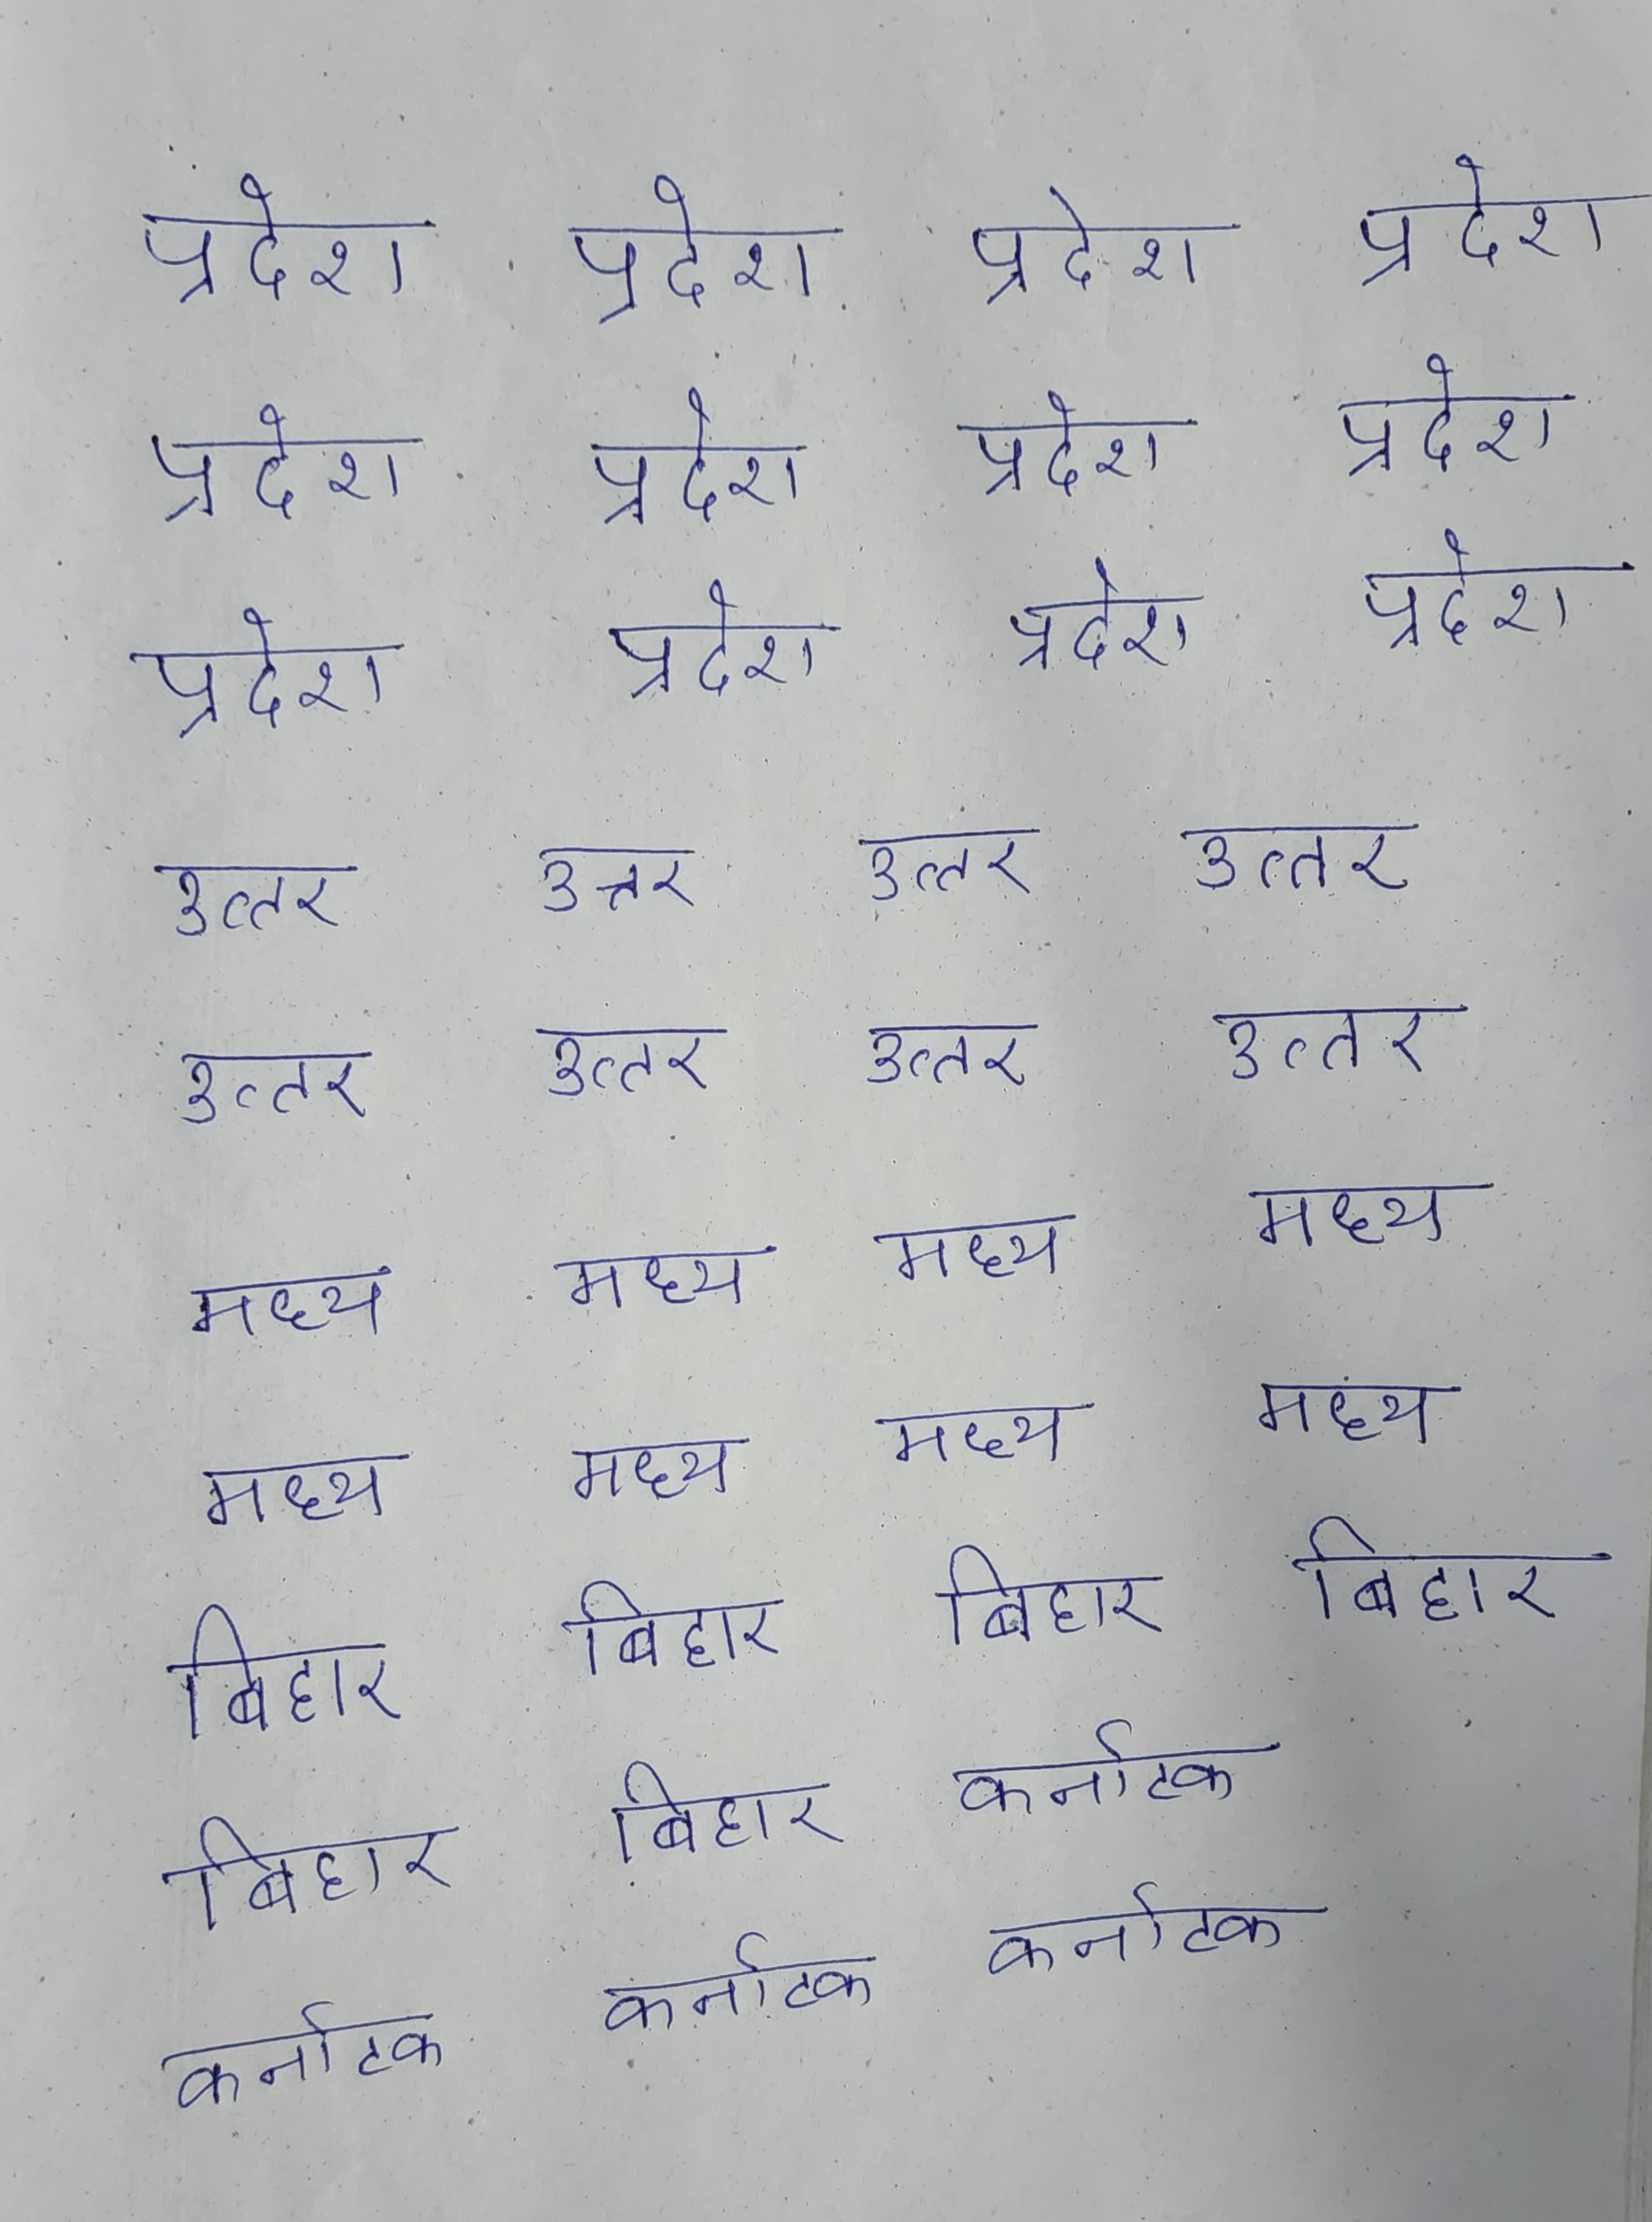 प्रदेश प्रदेश प्रदेश प्रदेश
प्रदेश प्रदेश प्रदेश प्रदेश
प्रदेश प्रदेश प्रदेश प्रदेश
उत्तर उत्तर उत्तर उत्तर
उत्तर उत्तर उत्तर उत्तर
मध्य मध्य मध्य मध्य
मध्य मध्य मध्य मध्य
बिहार बिहार बिहार बिहार
बिहार बिहार कर्नाटक
कर्नाटक कर्नाटक कर्नाटक